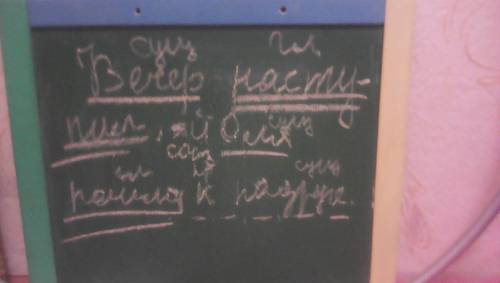 сущ гл.
Вечер насту-
сущ
пил, и Оля
союз
гл пр сущ
пошла к подруге.